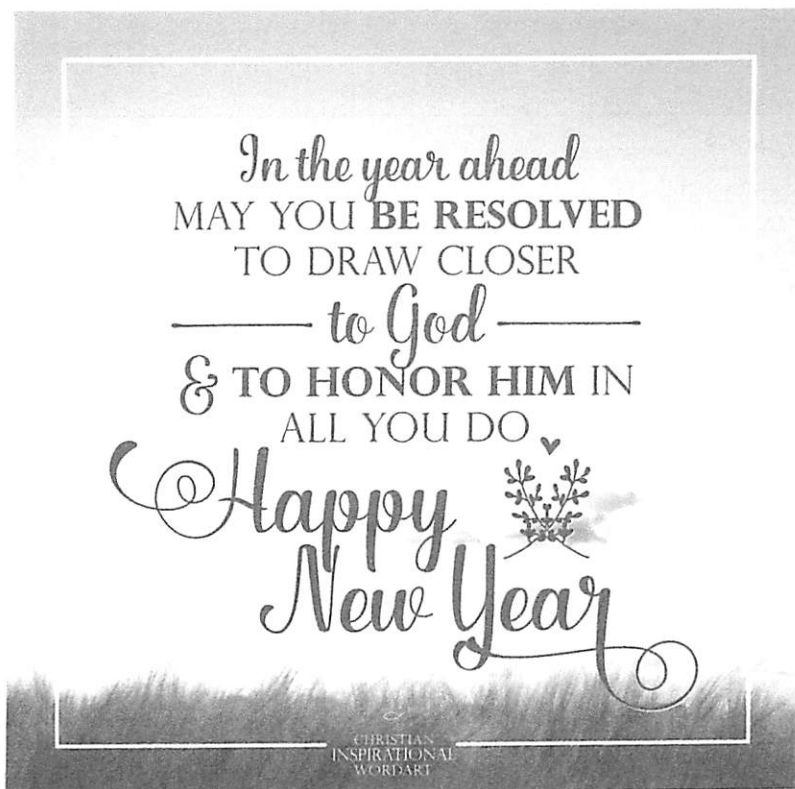 In the year ahead
MAY YOU BE RESOLVED
TO DRAW CLOSER
to God
& TO HONOR HIM IN
ALL YOU DO
Happy
New Year
CHRISTIAN
INSPIRATIONAL
WORDART